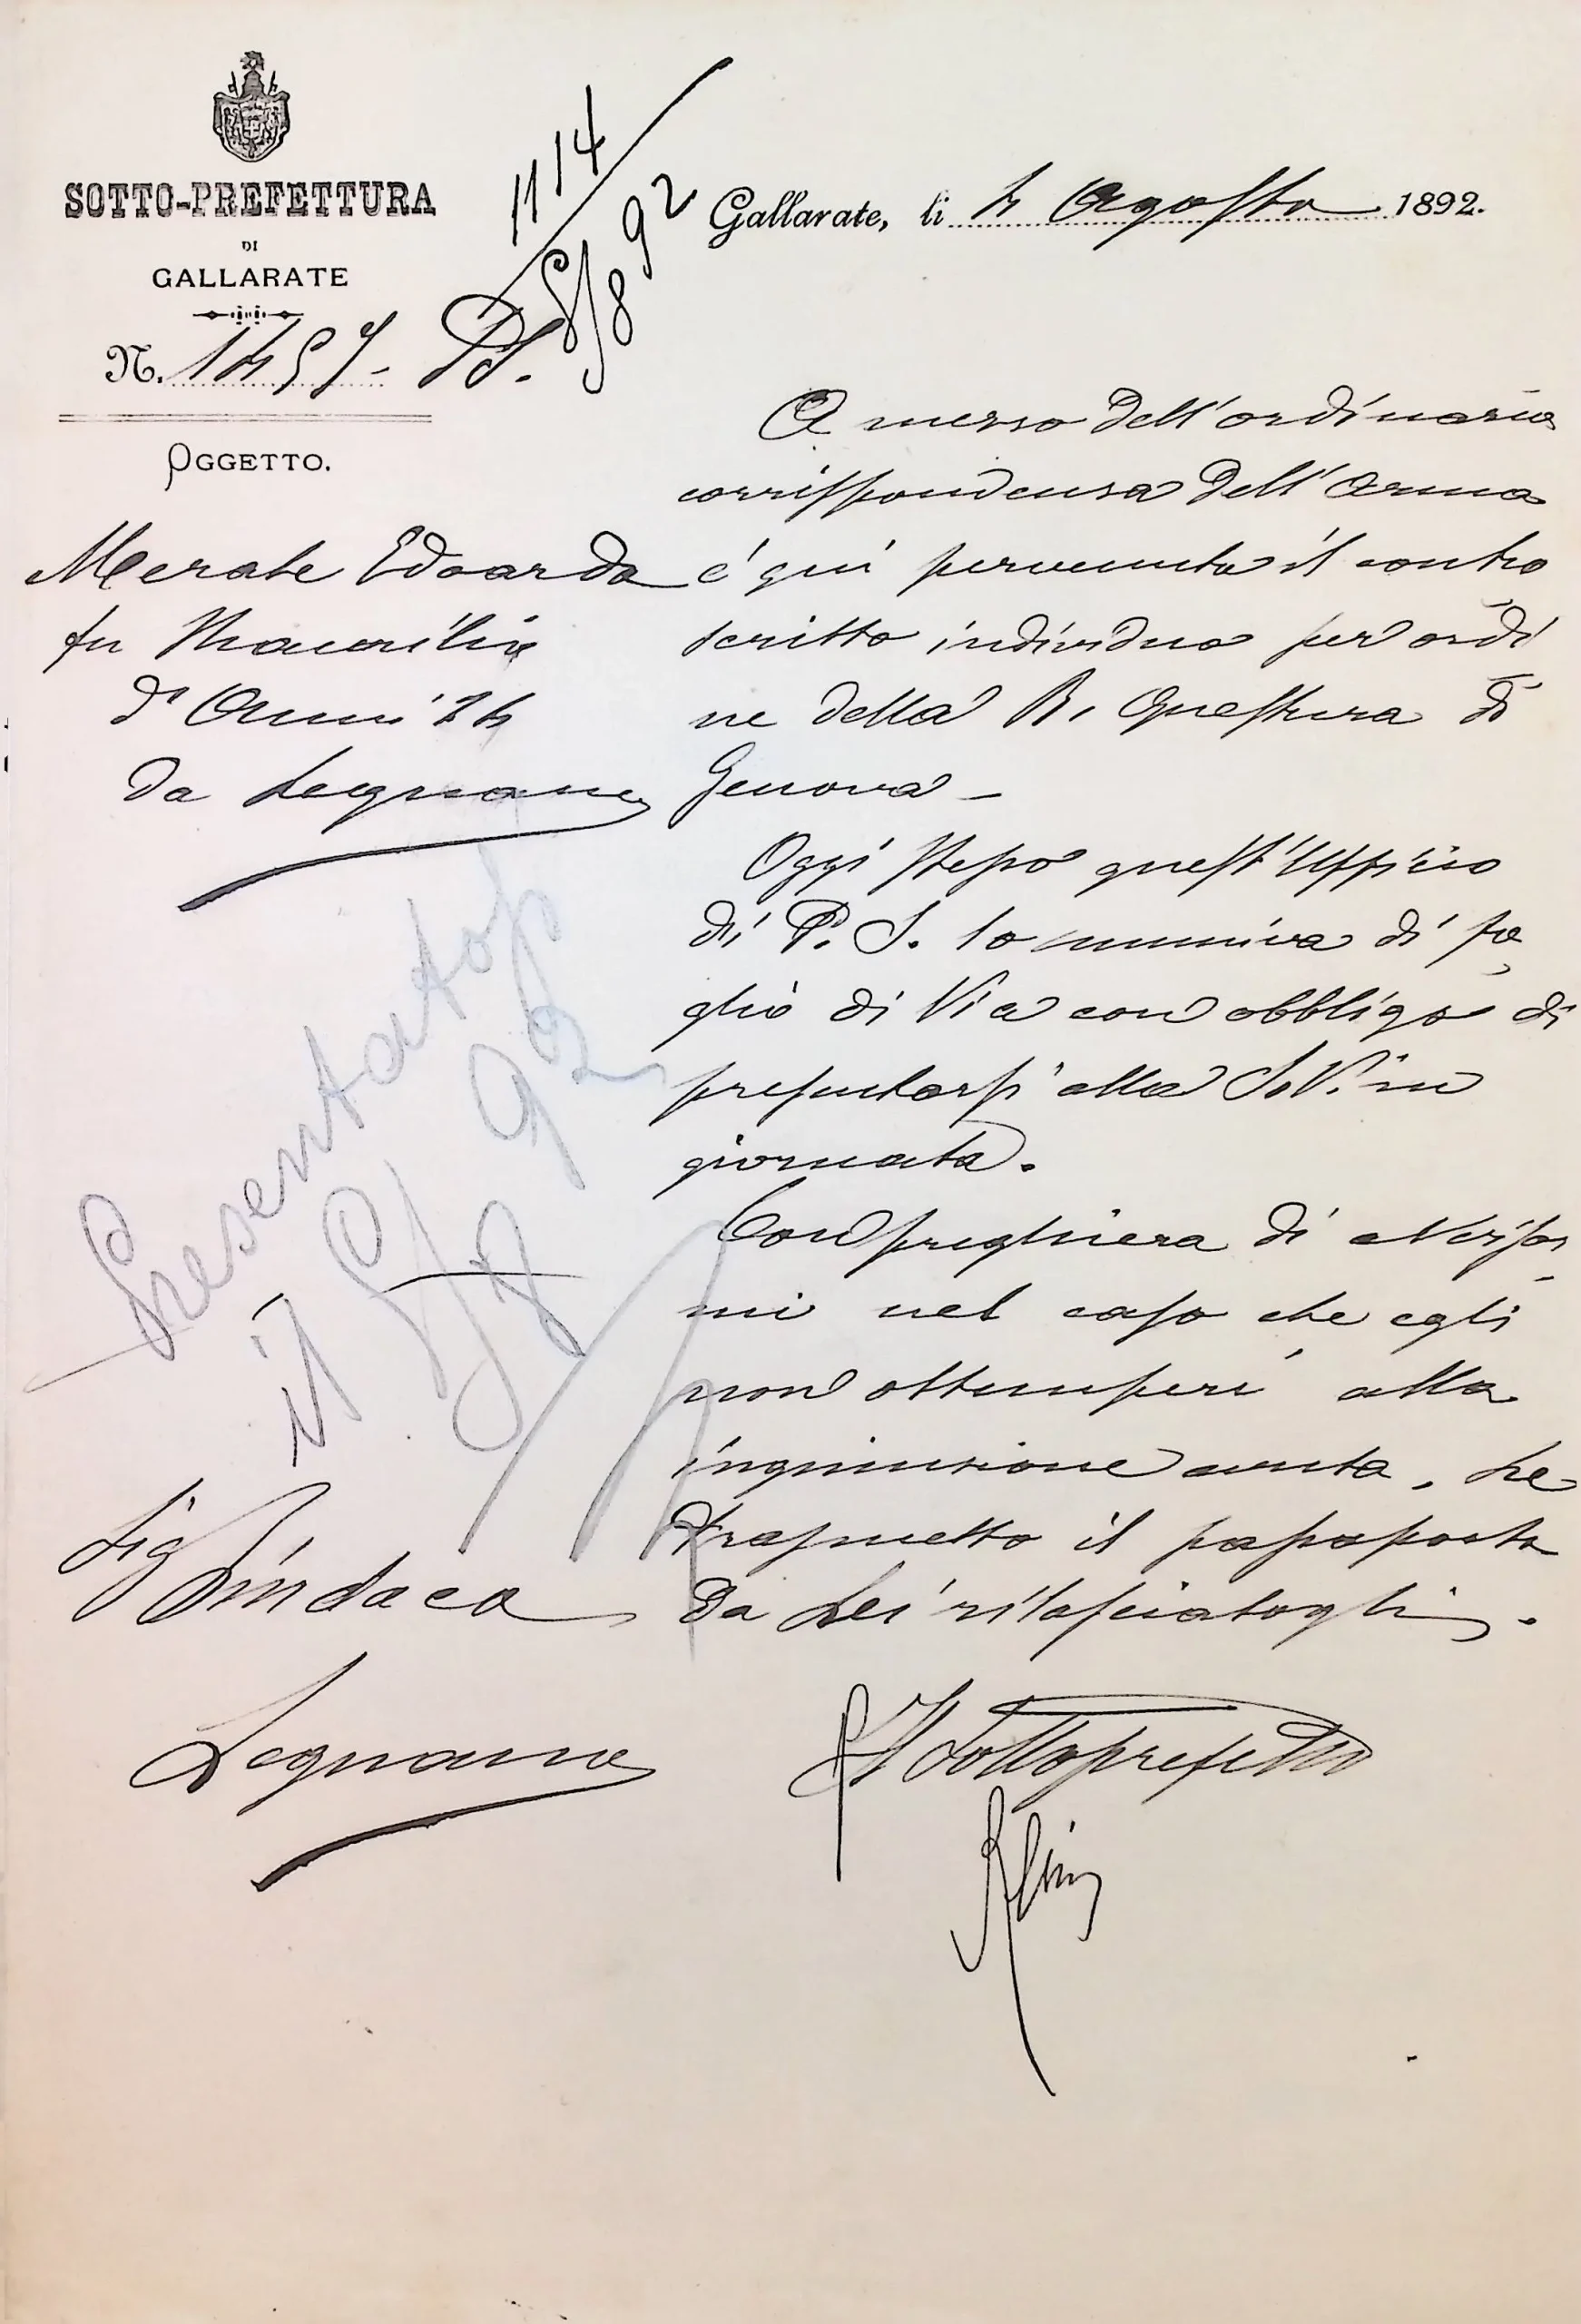 SOTTO-PREFETTURA
DI
GALLARATE
N. 1457- PS.
1114
5/8 92
Gallarate, li 4 Agosto 1892.
OGGETTO.
Merate Edoardo
fu Maurilio
d'Anni 24
da Legnano
A mezzo dell'ordinaria
corrispondenza dell'Arma
é quí pervenuto il contro
scritto individuo per ordi
ne della R. Questura di
Genova -
Oggi stesso quest'Ufficio
di P. S. lo muniva di fo
glio di Via con obbligo di
presentarsi alla S.V. in
giornata.
Con preghiera di avvisar
mi nel caso che egli
non ottemperi alla
ingiunzione avuta, Le
trasmetto il passaporto
da Lei rilasciatogli.
Presentatosi
il 5/8 92
Sig Sindaco
Legnano
Il Sottoprefetto